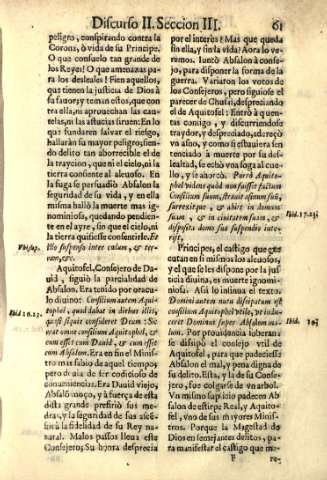 Discurso II. Seccion III. 61
peligro, conspirando contra la
Corona, ò vida de su Principe.
O que consuelo tan grande de
los Reyes! O que amenazas pa-
ra los desleales! Fien aquellos,
que tienen la justicia de Dios à
su fauor, y teman estos, que con-
tra ella, ni aprouechan las cau-
telas, ni las astucias siruen: En lo
que fundaren saluar el riesgo,
hallaràn su mayor peligro, sien-
do delito tan aborrecible el de
la traycion, que ni el cielo, ni la
tierra consiente al aleuoso. En
la fuga se persuadiò Absalon la
seguridad de su vida, y en ella
misma hallò la muerte mas ig-
nominiosa, quedando pendien-
te en el ayre, sin que el cielo, ni
la tierra quisiesse consentirle. Et
ille suspenso inter cœlum, & ter-
ram, &c.
Vbi sup.
Aquitofel, Consejero de Da-
uid, siguiò la parcialidad de
Absalon. Era tenido por oracu-
lo diuino: Consilium autem Aqui-
tophel, quod dabat in diebus illis,
quasi si quis consuleret Deum: Sic
erat omne consilium Aquitophel, &
cum esset cum Dauid, & cum esset
cum Absalom. Era en fin el Minis-
tro mas sabio de aquel tiempo;
pero deuia de ser codicioso de
conueniencias. Era Dauid viejo,
Absalò moço, y à fuerça de esta
dista grande prefiriò sus me-
dras, y la seguridad de sus ascē-
sos à la fidelidad de su Rey na-
tural. Malos passos lleua este
Consejero; Su honra desprecia
por el interès! Mas que queda
sin ella, y sin la vida? Aora lo ve-
remos. Iuntò Absalon à conse-
jo, para disponer la forma de la
guerra. Variaron los votos de
los Consejeros, pero siguiose el
parecer de Chusai, despreciando
el de Aquitofel: Entrò à quen-
tas consigo, y discurriendose
traydor, y despreciado, adereçò
vn asno, y como si estuuiera sen-
tenciado à muerte por su des-
lealtad, se echò vna soga al cue-
llo, y se ahorcò. Porrò Aquito-
phel videns quòd non fuisset factum
consilium suum, strauit asinum suū,
surrexitque, & abijt in domum
suam, & in ciuitatem suam, &
disposita domo sua suspendio inte-
rijt.
Ibid. 17. 23.
Principes, el castigo que exe-
cutan en si mismos los aleuosos,
y el que se les dispone por la jus-
ticia diuina, es muerte ignomi-
niosa. Assi lo intima el texto:
Domini autem nutu dissipatum est
consilium Aquitophel vtile, vt indu-
ceret Dominus super Absalom ma-
lum. Por prouidencia soberana
se dissipò el consejo vtil de
Aquitofel, para que padeciesse
Absalon el mal, y pena digna de
su delito. Esta, y la de su Conseje-
ro, fue colgarse de vn arbol.
Vn mismo suplicio padecen Ab
salon de estirpe Real, y Aquito-
fel, vno de sus mayores Minis-
tros. Porque la Magestad de
Dios en semejantes delitos, pa-
ra manifestar el castigo que me-
F re-